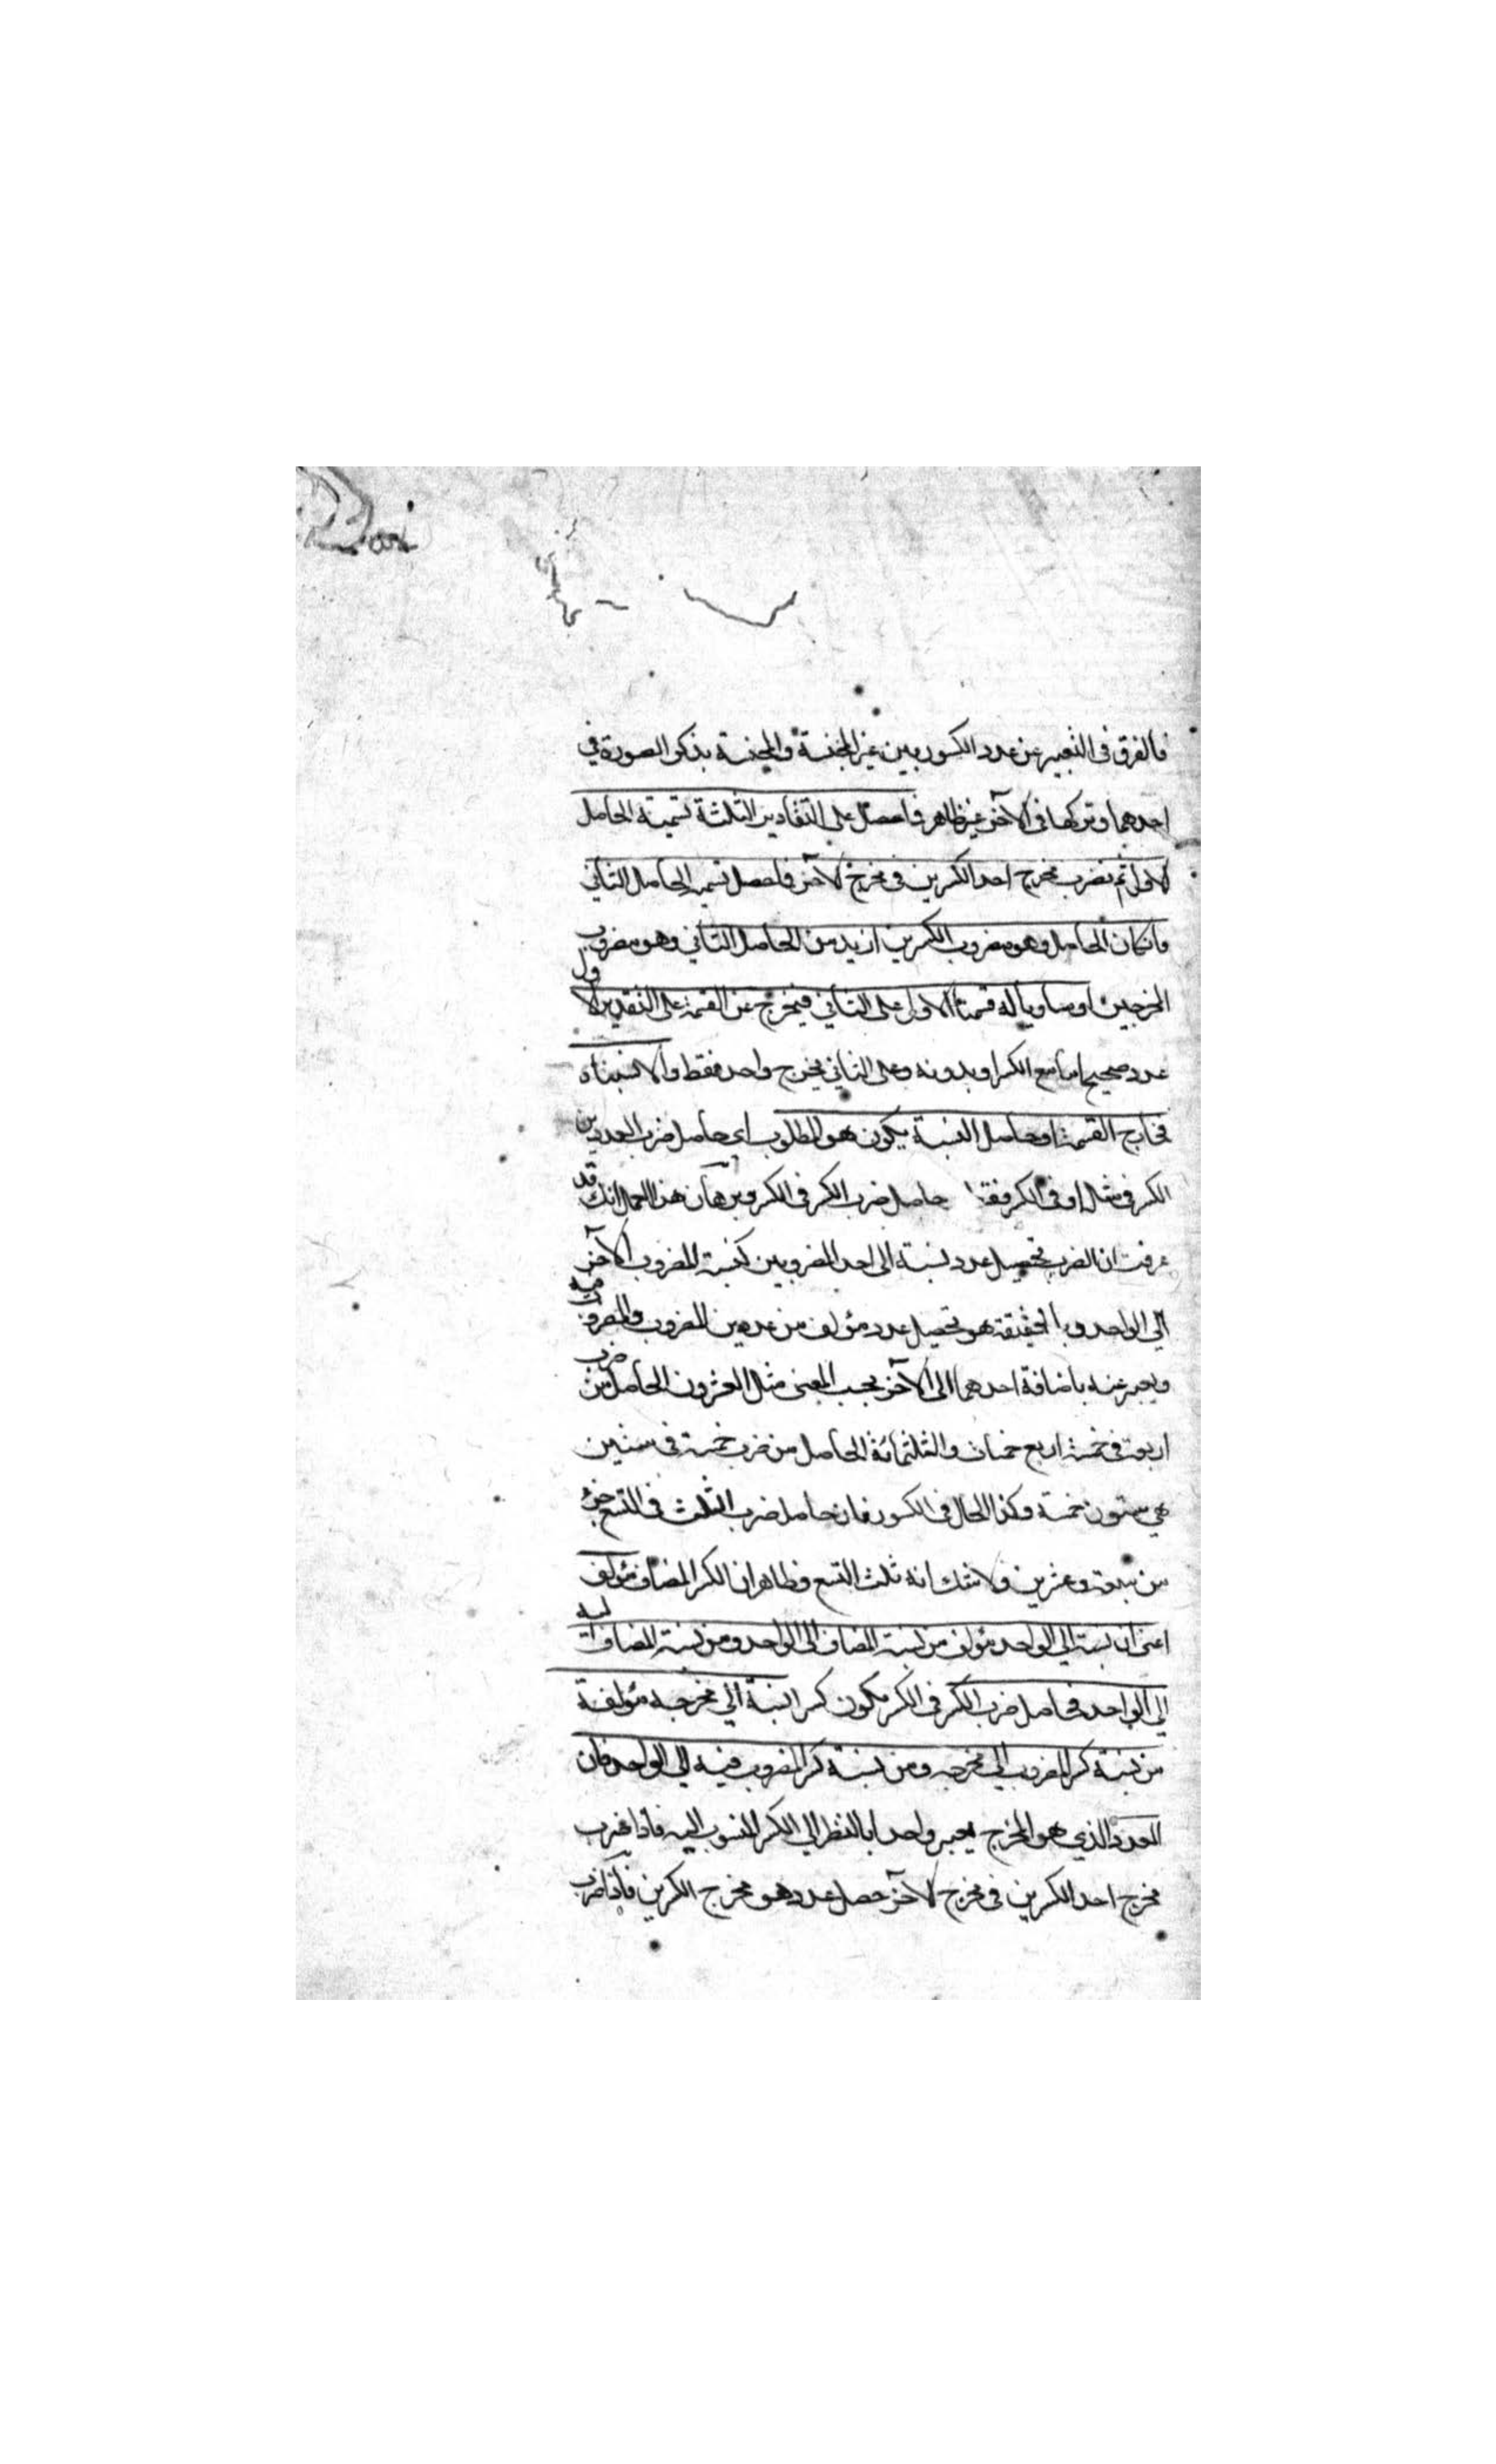 فالفرق فى التعبير عن عدد الكسور بين غير المجنسة والمجنسة بذكر الصورة في
احدهما وتركها فى الآخر غير ظاهر فما حصل على التقادير الثلثة تسميته الحاصل
الاول ثم تضرب مخرج احد الكسرين فى مخرج الآخر فما حصل تسميه الحاصل الثاني
فان كان الحاصل وهو مضروب الكسرين ازيد من الحاصل الثاني وهو مضروب
المخرجين او مساويا له قسمنا الاول على الثاني فيخرج عن القسمة على التقدير الاول
عدد صحيح اما مع الكسر او بدونه وعلى الثاني يخرج واحد فقط والا نسبناه
فخارج القسمة او حاصل النسبة يكون هو المطلوب اي حاصل ضرب العددين
الكسر فى مثله او فى الكسر فقط حاصل ضرب الكسر فى الكسر وبرهان هذا العمل انك قد
عرفت ان الضرب تحصيل عدد نسبته الى احد المضروبين كنسبة المضروب الآخر
الي الواحد وبالحقيقة هو تحصيل عدد مؤلف من عددين المضروب والمضروب فيه
ويعبر عنه باضافة احدهما الى الآخر بحسب المعنى مثل العشرون الحاصل من ضرب
اربعة فى خمسة اربع خمسات والثلثمائة الحاصل من ضرب خمسة فى ستين
هي ستون خمسة وكذا الحال فى الكسور فان حاصل ضرب الثلث فى التسع جزء
من سبعة وعشرين ولا شك انه ثلث التسع وظاهر ان الكسر المضاف مؤلف
اعنى ان نسبته الي الواحد مؤلف من نسبة المضاف الى الواحد ومن نسبة المضاف اليه
الي الواحد فحاصل ضرب الكسر فى الكسر يكون كسرا نسبة الي مخرجه مؤلفة
من نسبة كسر المضروب الي مخرجه ومن نسبة كسر المضروب فيه الي الواحد فان
العدد الذي هو المخرج يعتبر واحدا بالنظر الي الكسر المنسوب اليه فاذا ضرب
مخرج احد الكسرين فى مخرج الآخر حصل عدد هو مخرج الكسرين فاذا ضرب